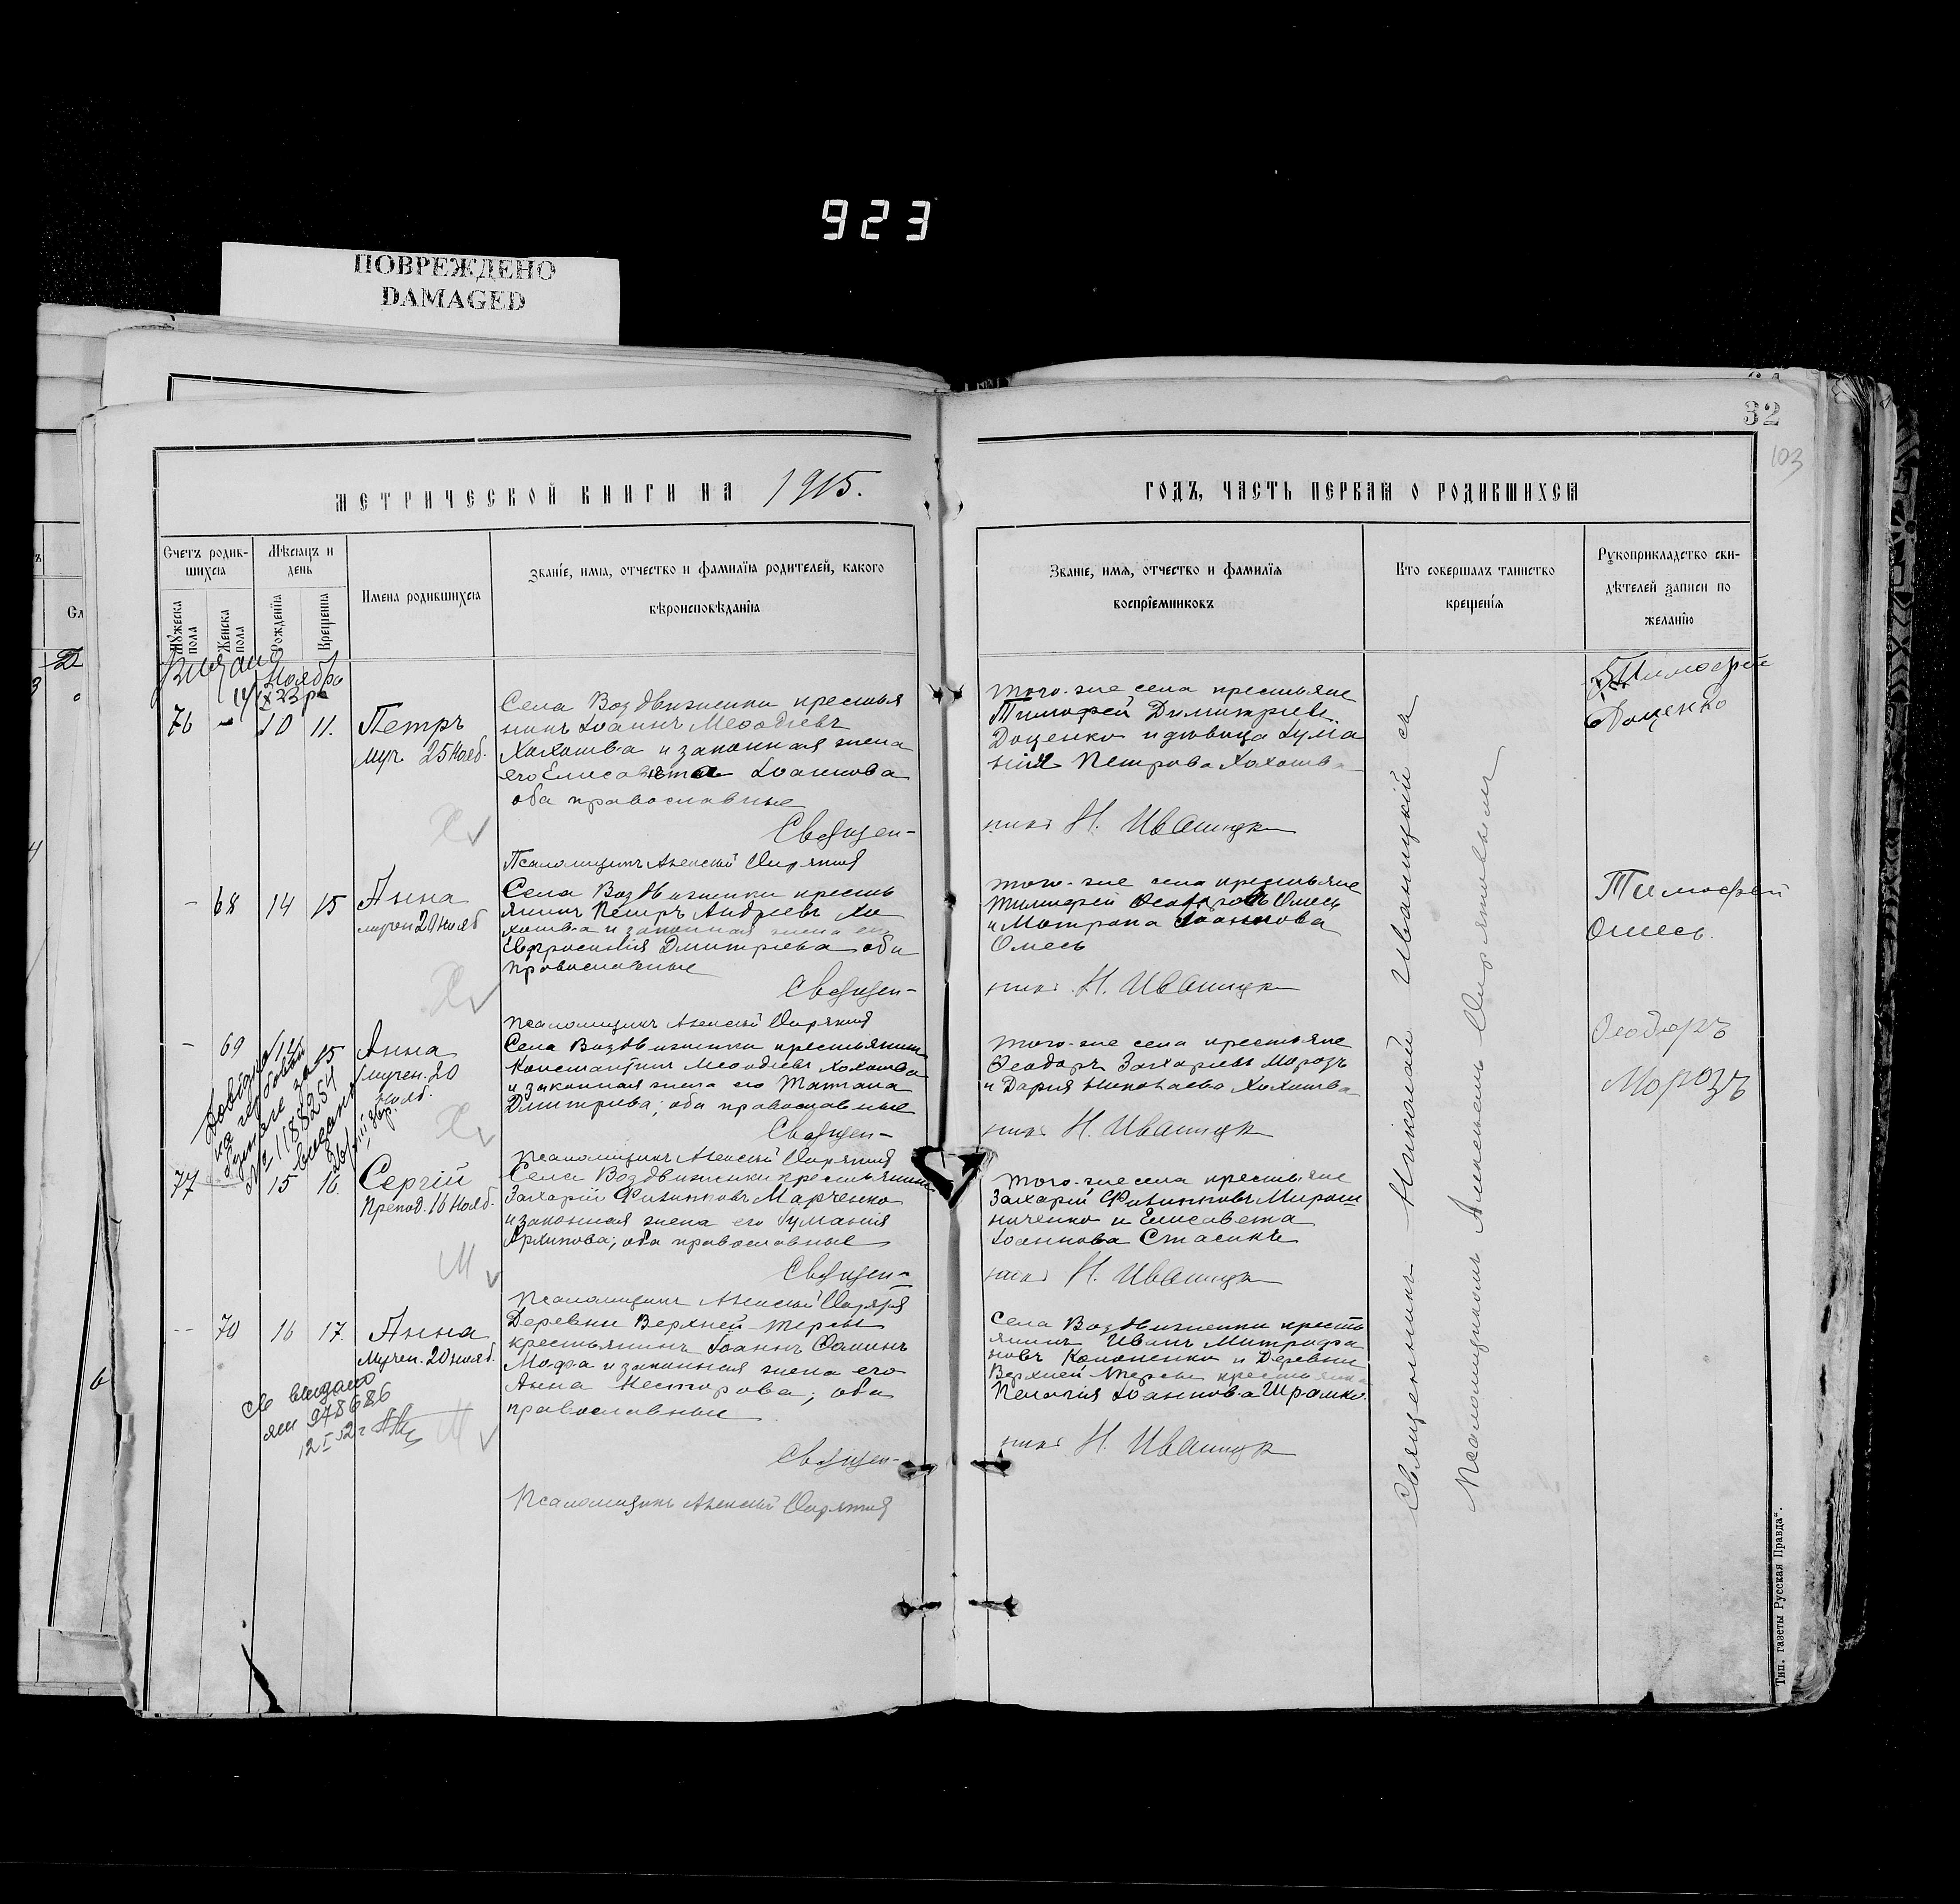 923
ПОВРЕЖДЕНО
DAMAGED
32
103
МЕТРИЧЕСКОЙ КНИГИ НА 1915.
ГОДЪ, ЧАСТЬ ПЕРВАЯ О РОДИВШИХСЯ
Счетъ родив-
шихся
Мѣсяцъ и
день
Мужеска
пола
Женска
пола
Рожденія
Крещенія
Имена родившихся
Званіе, имя, отчество и фамилія родителей, какого
вѣроисповѣданія
Званіе, имя, отчество и фамилія
воспріемниковъ
Кто совершалъ таинство
крещенія
Рукоприкладство сви-
дѣтелей записи по
желанію
Ноября
76 - 10 11.
Петръ
муч. 25 Нояб.
Села Воздвиженки крестья
нинъ Іоаннъ Меѳодіевъ
Хохотва и законная жена
его Елисавета Іоаннова
оба православные
Священ-
Псаломщикъ Алексій
того-же села крестьяне
Тимофей Димитріевъ
Доценко и дѣвица
Петрова Хохотва
никъ Н. Иваницкій
Тимофей
Доценко
- 68 14 15
Анна
мучен 20 нояб
Села Воздвиженки кресть
янинъ Петръ Андреевъ Хо
хотва и законная жена его
Евфросинія Дмитріева оба
православные
Священ-
Псаломщикъ Алексій
того-же села крестьяне
Тимофей Омесь
и Матрона Іоаннова
Омесь
никъ Н. Иваницкій
Тимофей
Омесь.
- 69 14 15
Анна
мучен. 20
Нояб.
Села Воздвиженки крестьянинъ
Константинъ Меѳодіевъ Хохотва
и законная жена его Татіана
Дмитріева; оба православные
Священ-
Псаломщикъ Алексій
того-же села крестьяне
Ѳеодоръ Захаріевъ Морозъ
и Дарія Николаева Хохотва
никъ Н. Иваницкій
Ѳеодоръ
Морозъ
№ 1188254
77 - 15 16.
Сергій
Препод. 16 Нояб.
Села Воздвиженки крестьянинъ
Захарій Филипповъ Марченко
и законная жена его
Архипова; оба православные
Священ-
Псаломщикъ Алексій
того-же села крестьяне
Захарій Филипповъ Мирош
ниченко и Елисавета
Іоаннова
никъ Н. Иваницкій
-- 70 16 17.
Анна
Мучен. 20 нояб.
978686
Деревни Верхней-Терсы
крестьянинъ Іоаннъ
и законная жена его
Анна Несторова; оба
православные
Священ-
Псаломщикъ Алексій
Села Воздвиженки кресть
янинъ Иванъ Митрофа
новъ Кононенко и Деревни
Верхней-Терсы крестьянка
Пелагія Іоаннова Шрамко.
никъ Н. Иваницкій
Священникъ Николай Иваницкій съ
Псаломщикомъ Алексѣемъ
Тип. газеты Русская Правда".